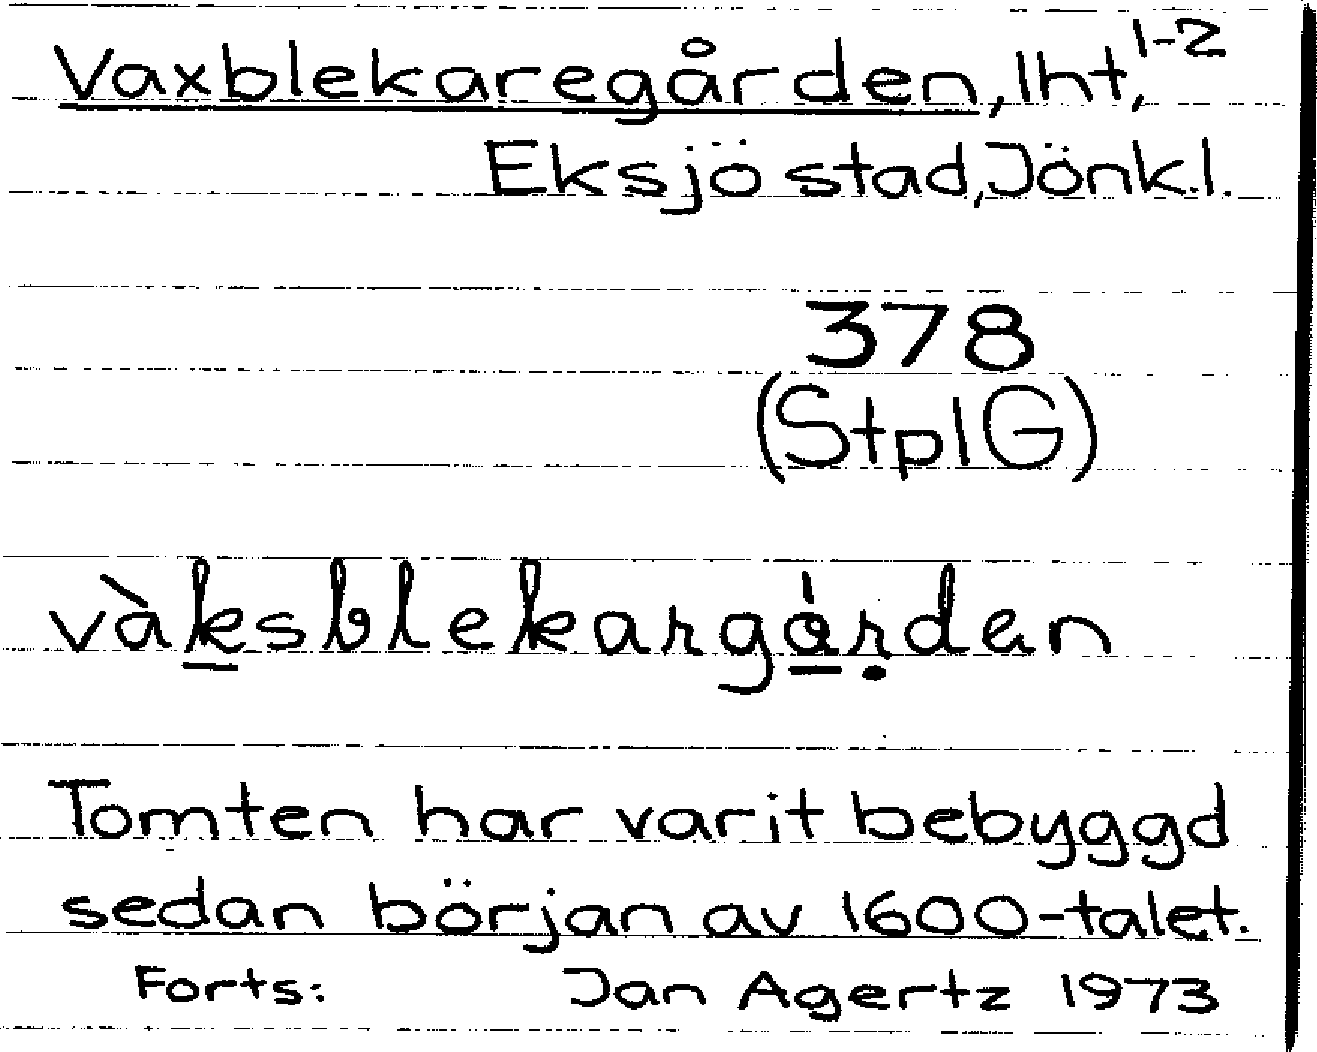 Vaxblekaregården, lht, 1-2
Eksjö stad, Jönk.l.
378
(StplG)
vàksblekargån̊rden
Tomten har varit bebyggd
sedan början av 1600-talet.
Forts: Jan Agertz 1973